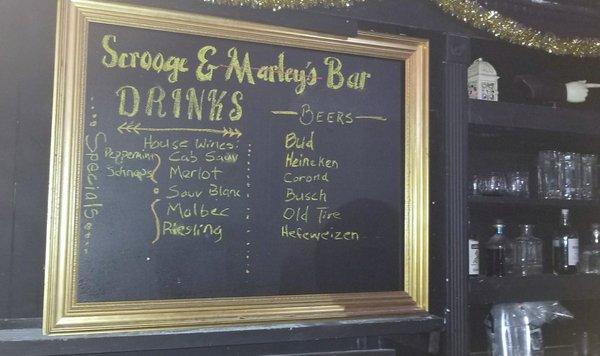 Scrooge & Marley's Bar
DRINKS
Specials
Peppermint
Schnapps
House Wines:
Cab Sauv
Merlot
Sauv Blanc
Malbec
Riesling
BEERS
Bud
Heineken
Corona
Busch
Old Tire
Hefeweizen